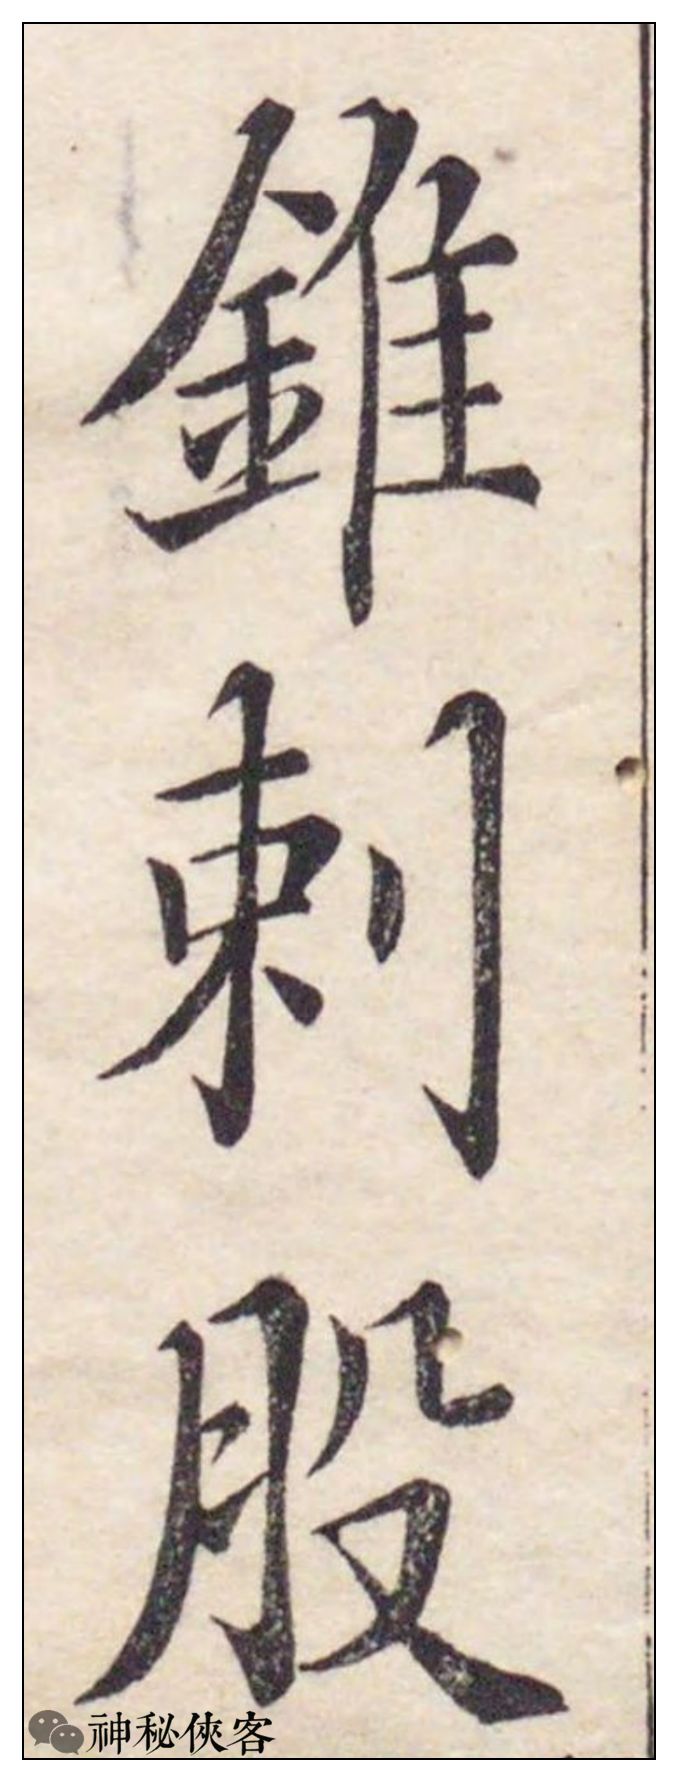 錐刺股
神秘俠客